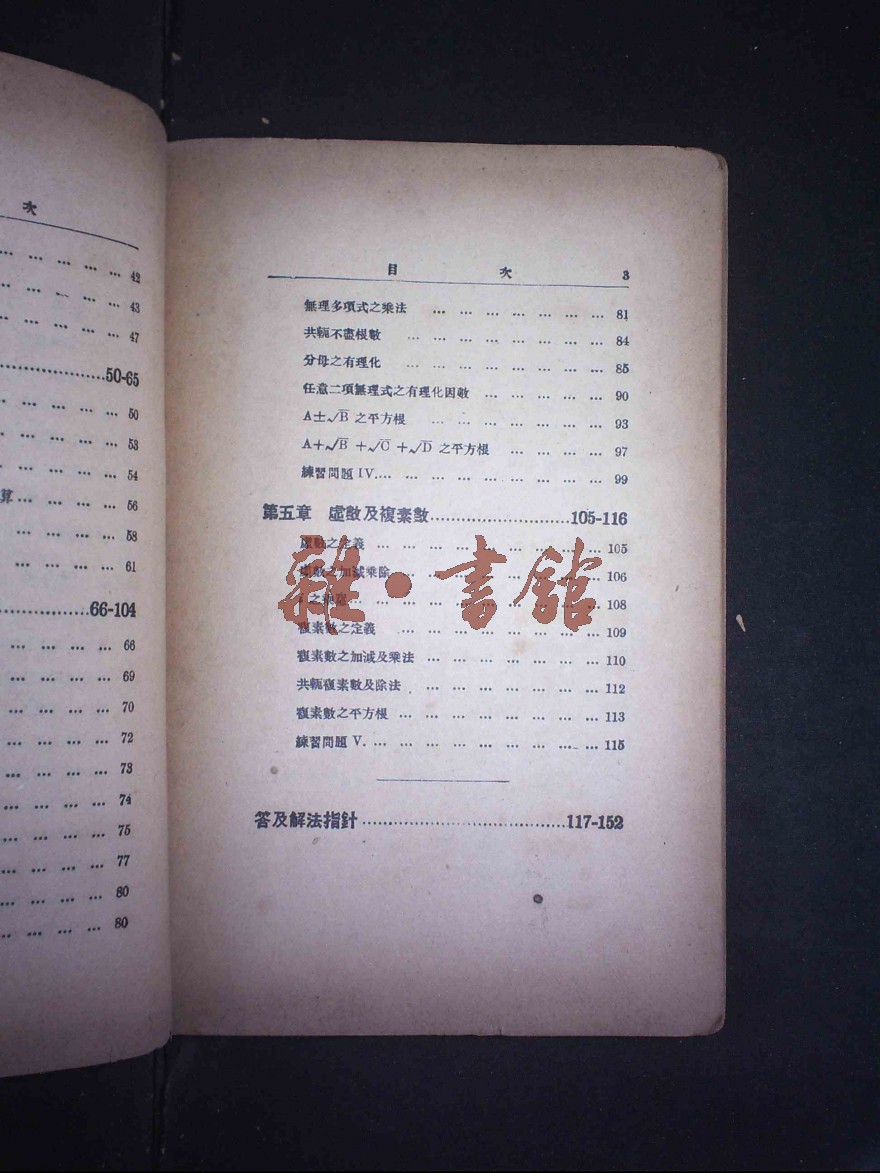 次
… … … … … 42
… … … … 43
… … … 47
……………………50-65
… … … … … 50
… … … … … 53
… … … … 54
算… … … … 56
… … … … … 58
… … … … … 61
……………………66-104
… … … … … 66
… … … … … 69
… … … … … 70
… … … … … 72
… … … … … 73
… … … … … 74
… … … … … 75
… … … … … 77
… … … … … 80
… … … … … 80
目 次 3
無理多項式之乘法 … … … … … … … 81
共軛不盡根數 … … … … … … … … 84
分母之有理化 … … … … … … … … 85
任意二項無理式之有理化因數 … … … … … 90
A±√B 之平方根 … … … … … … … 93
A+√B +√C +√D 之平方根 … … … … 97
練習問題 IV.… … … … … … … … … 99
第五章 虛數及複素數………………………105-116
虛數之定義 … … … … … … … … … 105
虛數之加減乘除 … … … … … … … 106
之 … … … … … … … … 108
複素數之定義 … … … … … … … … 109
複素數之加減及乘法 … … … … … … … 110
共軛複素數及除法 … … … … … … … 112
複素數之平方根 … … … … … … … … 113
練習問題 V. … … … … … … … … … 115
答及解法指針……………………………………117-152
雜·書館